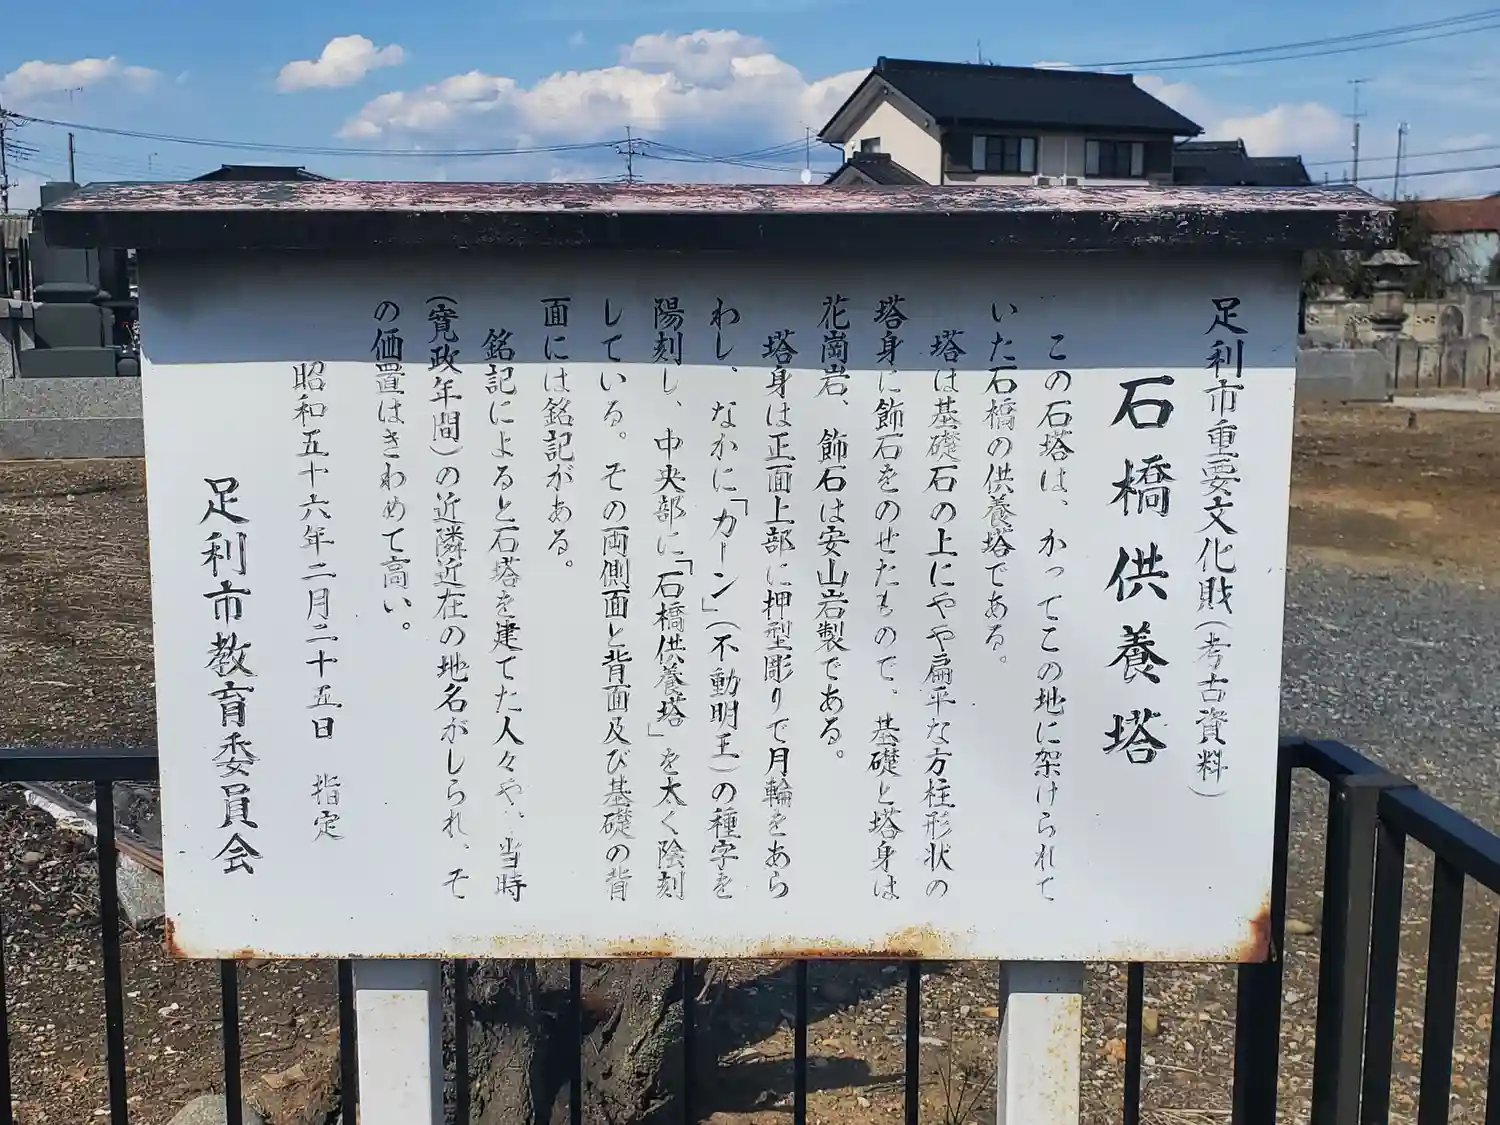 足利市重要文化財(考古資料)
石橋供養塔
この石塔は、かつてこの地に架けられて
いた石橋の供養塔である。
塔は基礎石の上にやや扁平な方柱形状の
塔身に飾石をのせたもので、基礎と塔身は
花崗岩、飾石は安山岩製である。
塔身は正面上部に押型彫りで月輪をあら
わし、なかに「カーン」(不動明王)の種字を
陽刻し、中央部に「石橋供養塔」を太く陰刻
している。その両側面と背面及び基礎の背
面には銘記がある。
銘記によると石塔を建てた人々や、当時
(寛政年間)の近隣近在の地名がしられ、そ
の価置はきわめて高い。
昭和五十六年二月二十五日 指定
足利市教育委員会